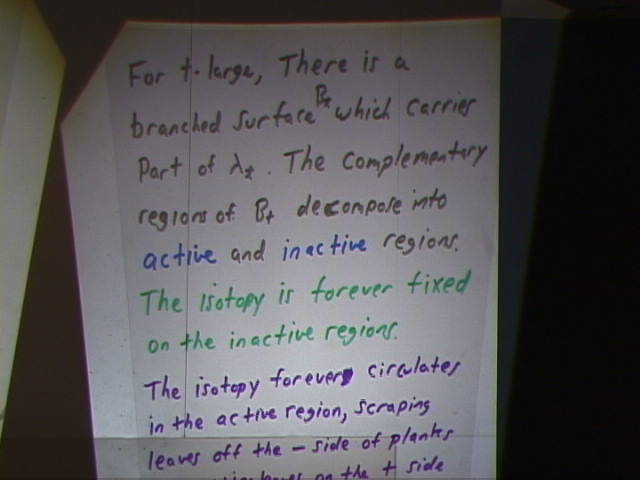 For t-large, There is a
branched surface B_t which carries
Part of λ_t. The complementary
regions of B_t decompose into
active and inactive regions.
The isotopy is forever fixed
on the inactive regions.
The isotopy forever circulates
in the active region, scraping
leaves off the - side of planks
leaves on the + side